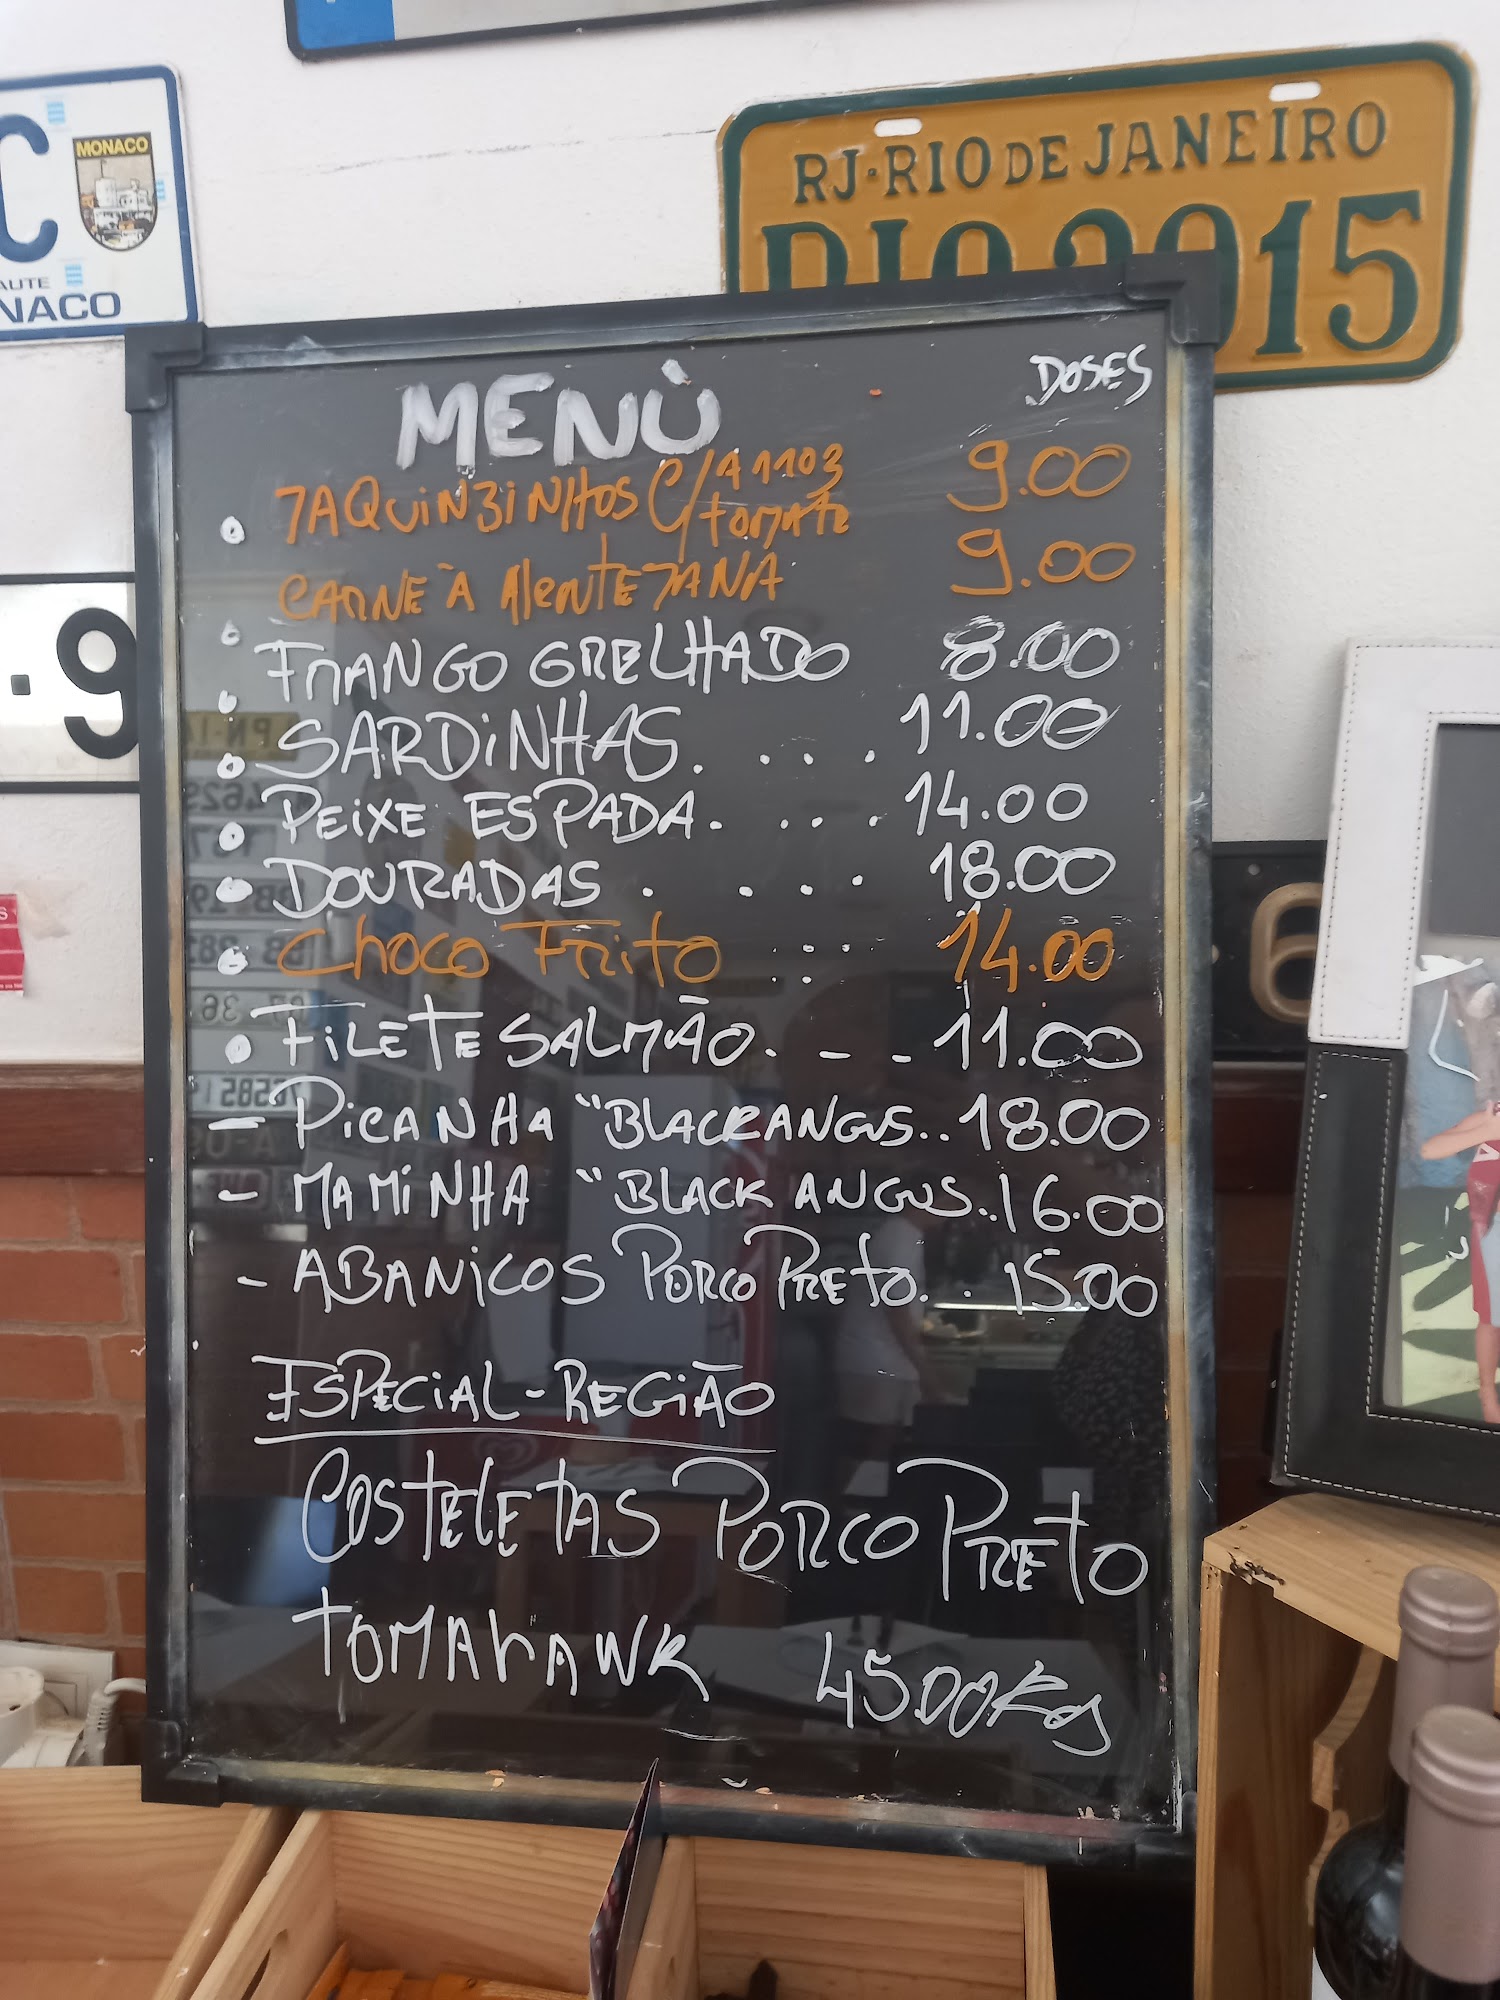 MONACO
C
AUTE
NACO
RJ·RIO DE JANEIRO
RIO 2015
·9
6
MENÙ
DOSES
JAQUINZINHOS C/ARROZ TOMATE 9.00
CARNE À AlENTEJANA 9.00
FRANGO GRELHADO 8.00
SARDINHAS. . . . 11.00
PEIXE ESPADA. . . . 14.00
DOURADAS . . . . 18.00
Choco Frito . . . 14.00
FILETE SALMÃO. - - 11.00
- PICANHA "BLACKANGUS.. 18.00
- MAMINHA "BLACK ANGUS.. 16.00
- ABANICOS PORCO PRETO. . 15.00
ESPECIAL-REGIÃO
COSTELETAS PORCO PRETO
TOMAhAWK 45.00 KG